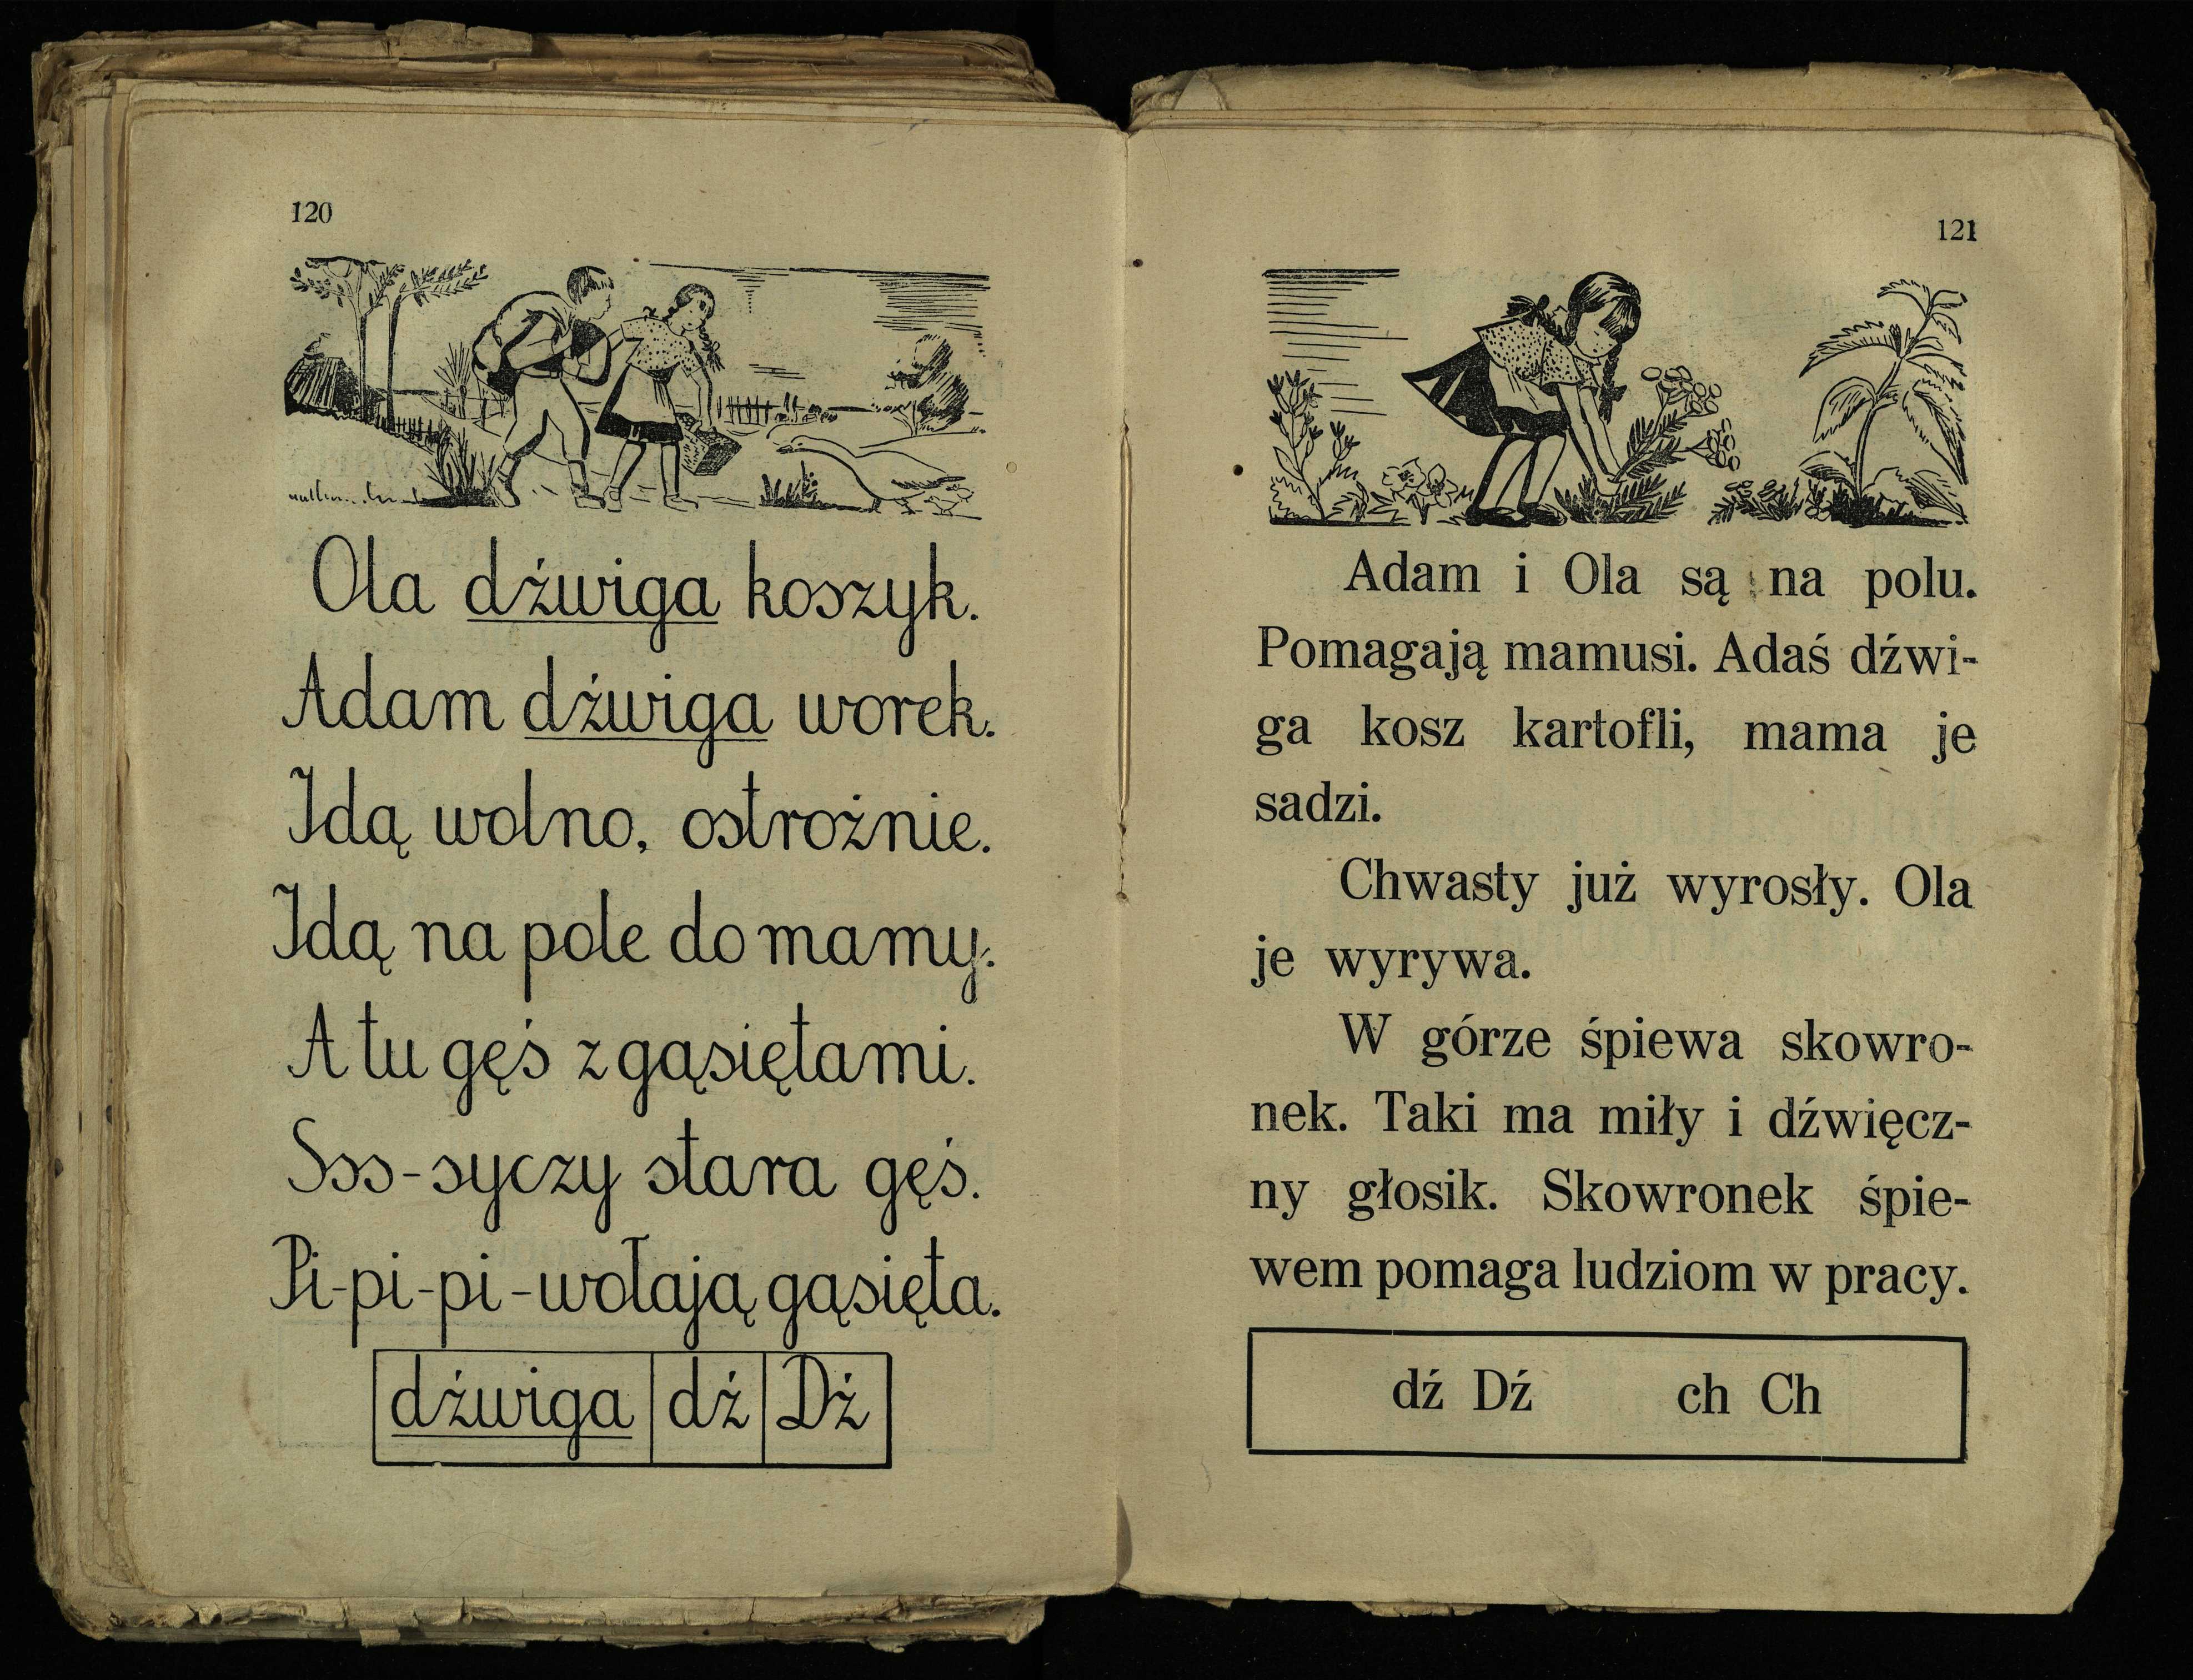 120
Ola dźwiga koszyk.
Adam dźwiga worek.
Idą wolno, ostrożnie.
Idą na pole do mamy.
A tu gęś z gąsiętami.
Sss-syczy stara gęś.
Pi-pi-pi-wołają gąsięta.
dźwiga dź Dź
121
Adam i Ola są na polu.
Pomagają mamusi. Adaś dźwi-
ga kosz kartofli, mama je
sadzi.
Chwasty już wyrosły. Ola
je wyrywa.
W górze śpiewa skowro-
nek. Taki ma miły i dźwięcz-
ny głosik. Skowronek śpie-
wem pomaga ludziom w pracy.
dź Dź ch Ch